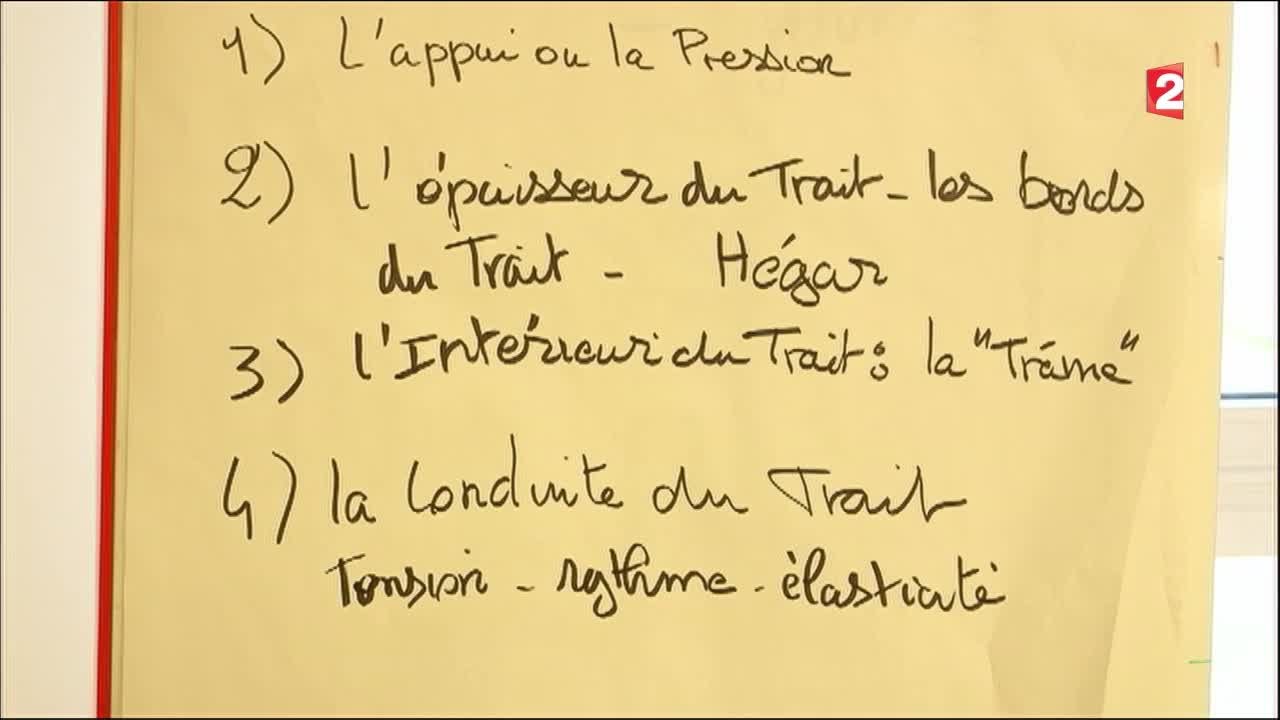 1) L'appui ou la Pression
2
2) l'épaisseur du Trait - les bords
du Trait - Hégar
3) l'Intérieur du Trait : la "Trame"
4) la Conduite du Trait
Tension - rythme - élasticité